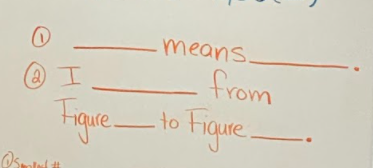 ① ______ means ________.
② I ________ from
Figure ___ to Figure ____.